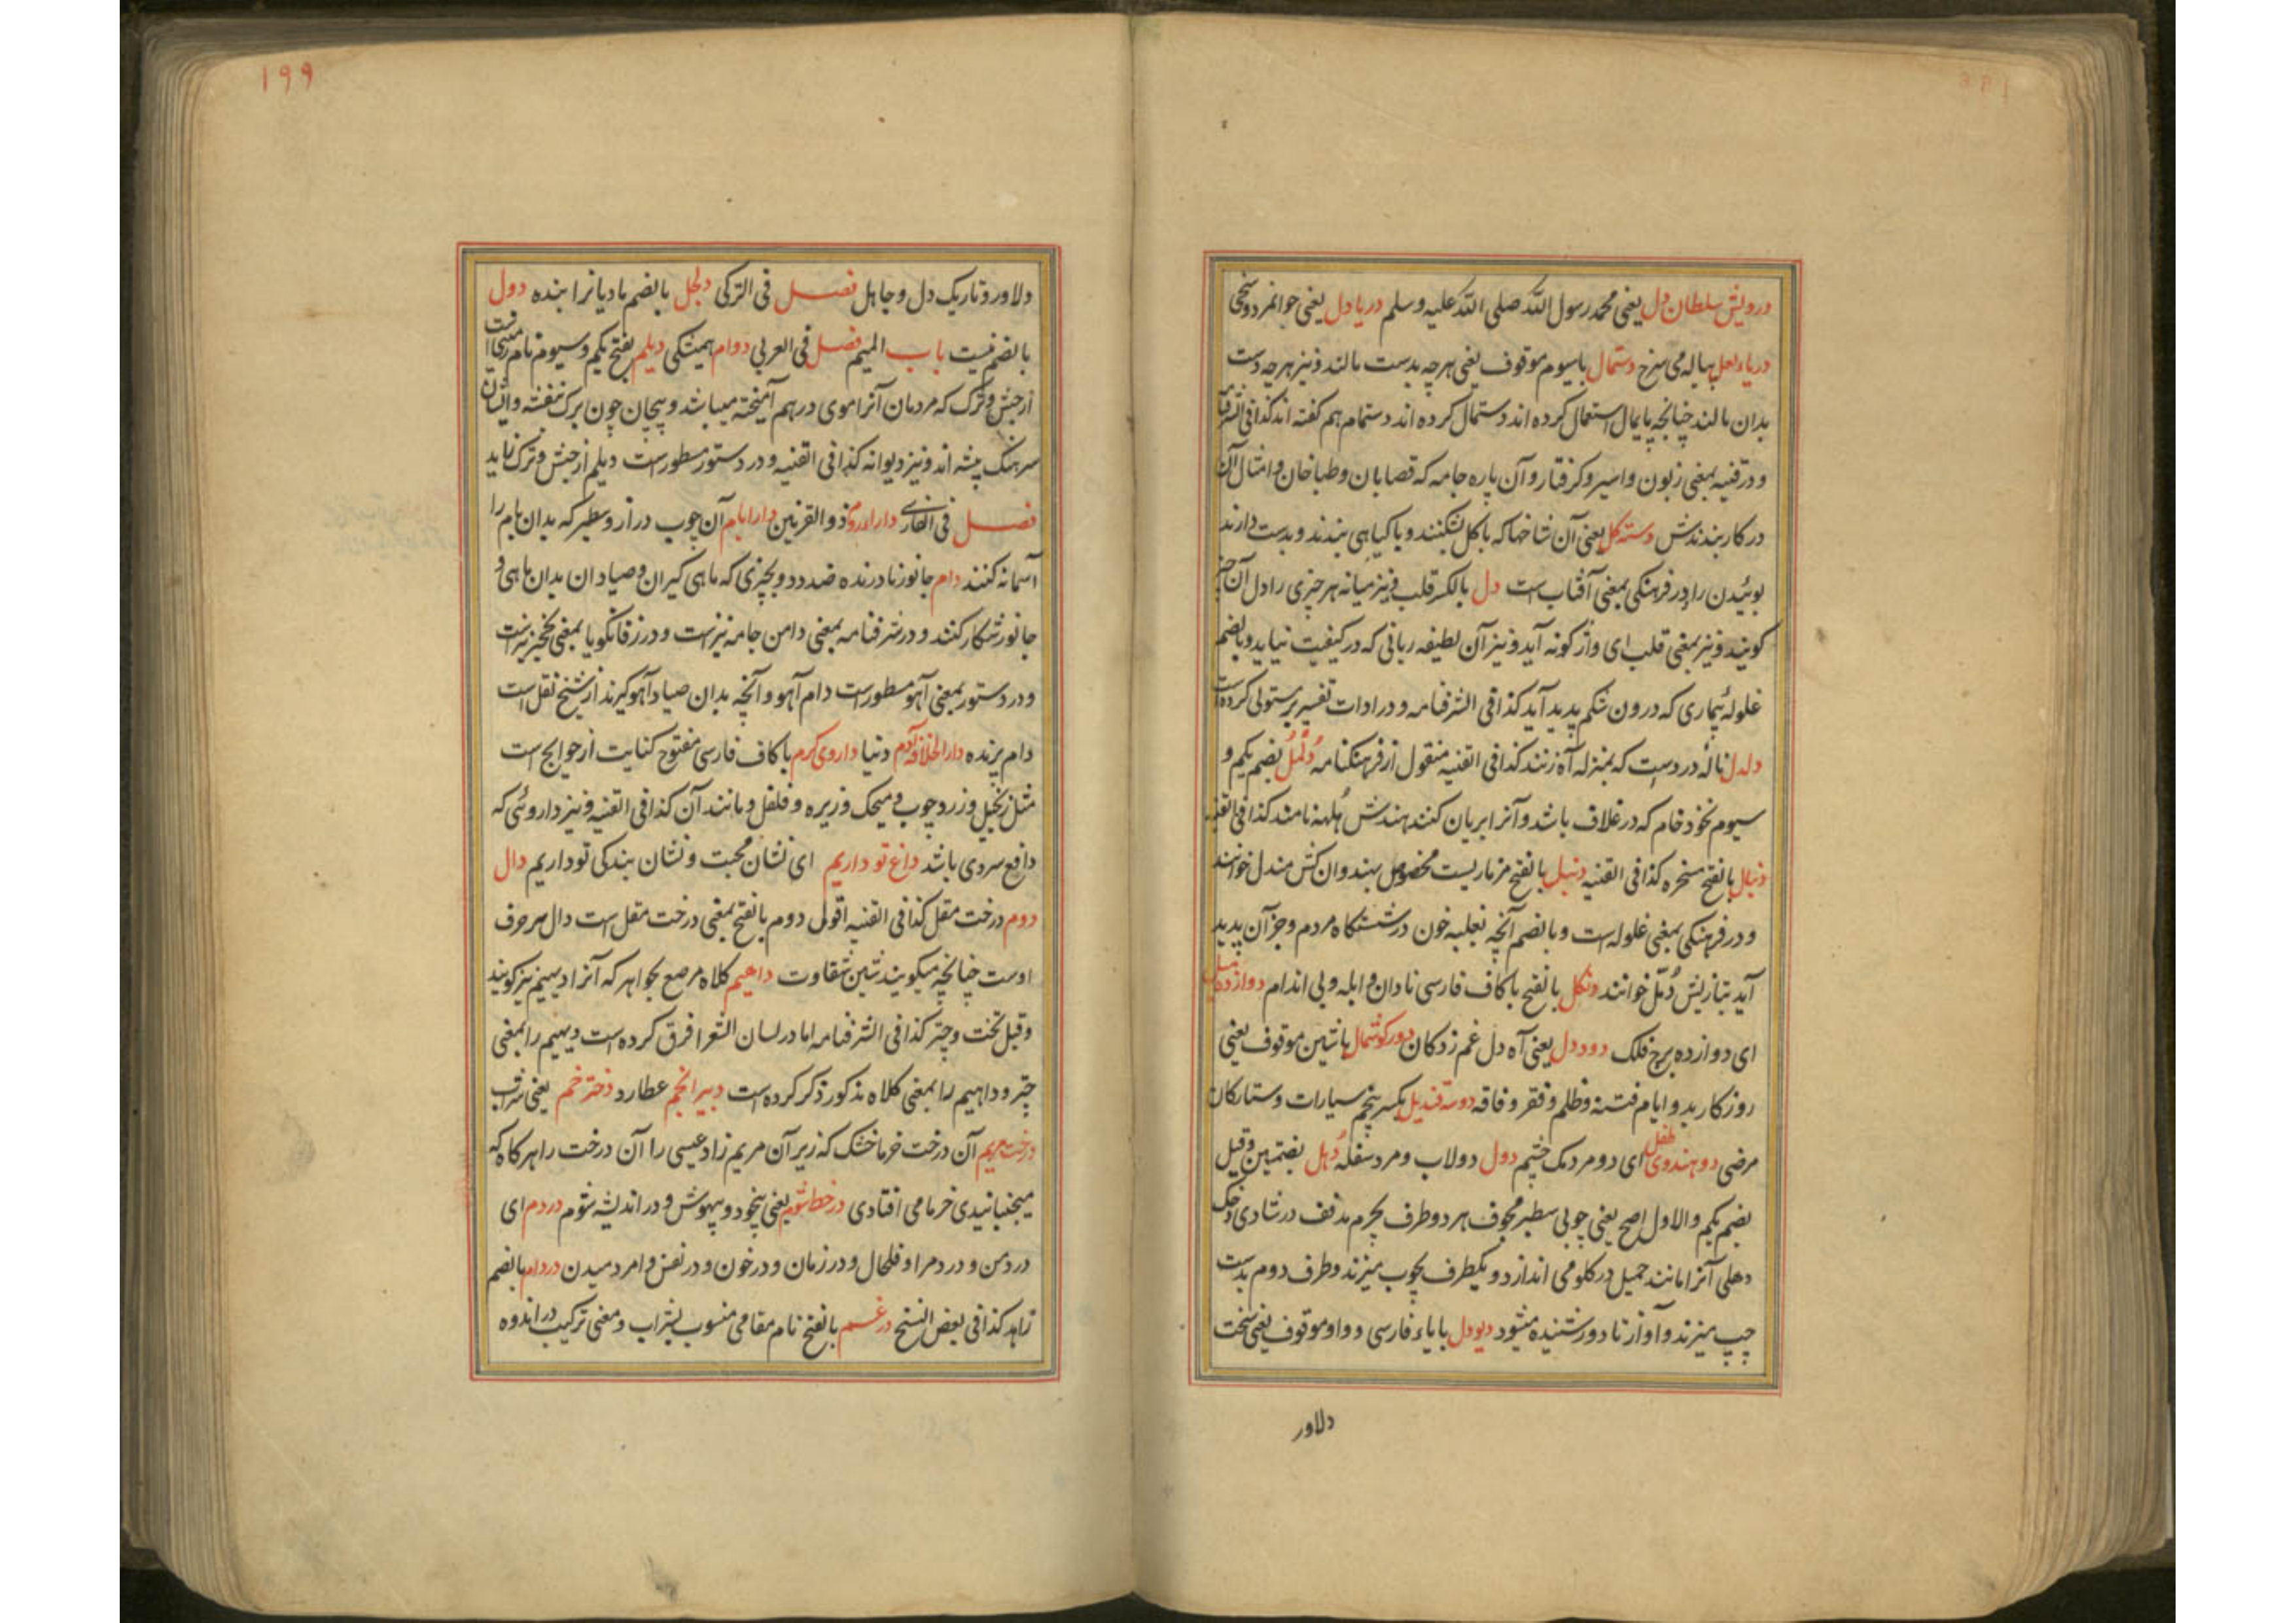 درویش سلطان دل یعنی محمد رسول الله صلی الله علیه وسلم دریا دل یعنی جوانمرد و سخی
دریاء لعل پیاله می سرخ دستمال باسیوم موقوف یعنی هرچه بدست مالند و نیز هرچه دست
بدان مالند چنانچه پایمال استعمال کرده اند دستمال کرده اند دستمام هم کفته اند کذا فی
و در قنیه بمعنی زبون و اسیر و کرفتار و آن پاره جامه که قصابان و طباخان و امثال آن
در کار بندندش دسته کل یعنی آن شاخها که با کل شکنند و با کیاهی بندند و بدست دارند
بوئیدن را و در فرهنکی بمعنی آفتاب است دل بالکسر قلب و نیز میانه هر چیزی را دل آن چیز
کویند و نیز بمعنی قلب ای واژکونه آید و نیز آن لطیفه ربانی که در کیفیت نیاید و بالضم
غلولۀ بیماری که درون شکم پدید آید کذا فی الشرفنامه و در ادات تفسیر کرده است
دلدل نالۀ درد است که بمنزله آه زنند کذا فی القنیه منقول از فرهنکنامه دُلمُل بضم یکم و
سیوم نخود خام که در غلاف باشد و آنرا بریان کنند هندش هُلهه نامند کذا فی القنیه
دنبال بالفتح مسخره کذا فی القنیه دنبل بالفتح مزماریست مخصوص بهند و ان کش مندل خوانند
و در فرهنکی بمعنی غلوله است و بالضم آنچه بغلبه خون در نشستکاه مردم و جز آن پدید
آید بتازیش دُمّل خوانند دنکل بالفتح با کاف فارسی نادان و ابله و بی اندام دوازده میل
ای دوازده برج فلک دود دل یعنی آه دل غم زدکان دور کوشمال باشین موقوف یعنی
روزکار بد و ایام فتنه و ظلم و فقر و فاقه دوسه قندیل بکسر پنجم سیارات و ستارکان
مرضی دو هندوی طفل ای دو مردمک چشم دول دولاب و مرد سفله دُهل بضمتین و قیل
بضم یکم والاول اصح یعنی چوبی سطبر مجوف هر دو طرف بچرم مدفف در شادی و جنک
دهلی آنرا مانند حمیل در کلو می اندازد و یکطرف بچوب میزند و طرف دوم بدست
چپ میزند و آواز تا دور شنیده میشود دیودل بایاء فارسی و واو موقوف یعنی سخت
دلاور
۱۹۹
دلاور و تاریک دل و جاهل فصل فی الترکی دلجل بالضم بادیانرا بنده دول
بالضم نیست باب المیم فصل فی العربی دوام همیشکی دیلم بفتح یکم و سیوم نام
از حبش و ترک که مردمان آنرا موی درهم آمیخته میباشد و پیچان چون برک بنفشه و ایشان
سرهنک پیشه اند و نیز دیوانه کذا فی القنیه و در دستور مسطور است دیلم از حبش و ترک زاید
فصل فی الفارسی داراء روم ذوالقرنین دارابام آن چوب دراز و سطبر که بدان بام را
آسمانه کنند دام جانور نادرنده ضد دد و بچیزی که ماهی کیران و صیادان بدان ماهی و
جانور شکار کنند و در شرفنامه بمعنی دامن جامه نیز است و در زفانکویا بمعنی نخچیر نیز است
و در دستور بمعنی آهو مسطور است دام آهو و آنچه بدان صیاد آهو کیرند از شیخ نقل است
دام پرنده دار الخلافۀ آدم دنیا داروی کرم با کاف فارسی مفتوح کنایت از حوایج است
مثل زنجبیل و زردچوب و میخک و زیره و فلفل و مانند آن کذا فی القنیه و نیز داروئی که
دافع سردی باشد داغ تو داریم ای نشان محبت و نشان بندکی تو داریم دال
دوم درخت مقل کذا فی القنیه اقول دوم بالفتح بمعنی درخت مقل است دال سر حرف
اوست چنانچه میکویند شین شقاوت داهیم کلاه مرصع بجواهر که آنرا دیهیم نیز کویند
و قیل تخت و چتر کذا فی الشرفنامه اما در لسان الشعرا فرق کرده است دیهیم را بمعنی
چتر و داهیم را بمعنی کلاه مذکور ذکر کرده است دبیر انجم عطارد دختر خم یعنی شراب
درخت مریم آن درخت خرما خشک که زیر آن مریم زاد عیسی را آن درخت را هرکاه که
میجنبانیدی خرما می افتادی در خط شوم یعنی بیخود و بیهوش و در اندیشه شوم دردم ای
در دمن و در دم را و فلحال و در زمان و در خون و در نفس و امر دمیدن دردام بالضم
زاهد کذا فی بعض النسخ درغم بالفتح نام مقامی منسوب بشراب و معنی ترکیب در اندوه